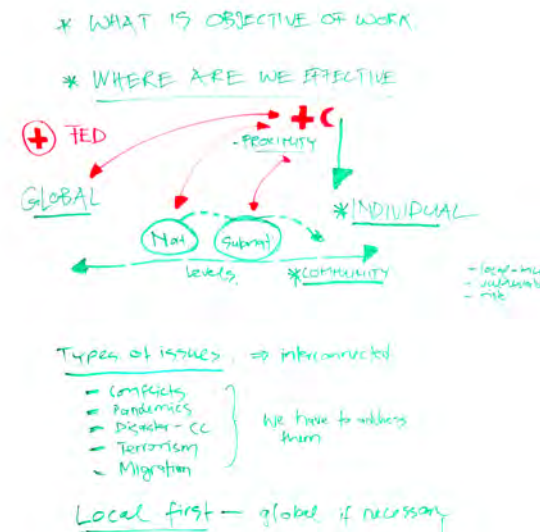 * WHAT IS OBJECTIVE OF WORK
* WHERE ARE WE EFFECTIVE
FED
- PROXIMITY
GLOBAL
* INDIVIDUAL
Nat
Subnat
levels
* COMMUNITY
Types of issues, ⇒ interconnected
- Conflicts
- Pandemics
- Disaster - CC
- Terrorism
- Migration
We have to address
them
Local first — global if necessary